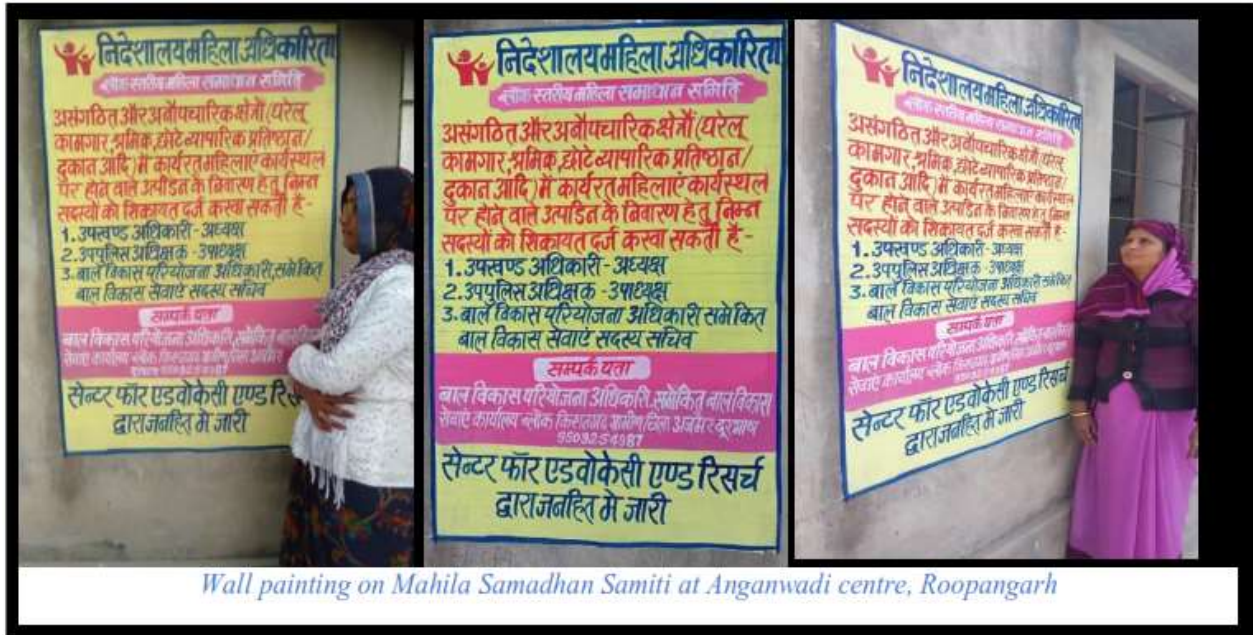 निदेशालय महिला अधिकारिता
ब्लॉक स्तरीय महिला समाधान समिति
असंगठित और अनौपचारिक क्षेत्रौं (घरेलू
कामगार, श्रमिक, छोटे व्यापारिक प्रतिष्ठान /
दुकान आदि) में कार्यरत महिलाएं कार्यस्थल
पर होने वाले उत्पीडन के निवारण हेतु निम्न
सदस्यों को शिकायत दर्ज करवा सकती है -
1. उपखण्ड अधिकारी - अध्यक्ष
2. उपपुलिस अधिक्षक - उपाध्यक्ष
3. बाल विकास परियोजना अधिकारी समेकित
बाल विकास सेवाएं सदस्य सचिव
सम्पर्क पता
बाल विकास परियोजना अधिकारी, समेकित बाल विकास
सेवाएं कार्यालय ब्लॉक किशनगढ़ ग्रामीण जिला अजमेर दूरभाष
सेन्टर फॉर एडवोकेसी एण्ड रिसर्च
द्वारा जनहित मे जारी
निदेशालय महिला अधिकारिता
ब्लॉक स्तरीय महिला समाधान समिति
असंगठित और अनौपचारिक क्षेत्रौं (घरेलू
कामगार, श्रमिक, छोटे व्यापारिक प्रतिष्ठान /
दुकान आदि) में कार्यरत महिलाएं कार्यस्थल
पर होने वाले उत्पीडन के निवारण हेतु निम्न
सदस्यों को शिकायत दर्ज करवा सकती है -
1. उपखण्ड अधिकारी - अध्यक्ष
2. उपपुलिस अधिक्षक - उपाध्यक्ष
3. बाल विकास परियोजना अधिकारी समेकित
बाल विकास सेवाएं सदस्य सचिव
सम्पर्क पता
बाल विकास परियोजना अधिकारी, समेकित बाल विकास
सेवाएं कार्यालय ब्लॉक किशनगढ़ ग्रामीण जिला अजमेर दूरभाष
सेन्टर फॉर एडवोकेसी एण्ड रिसर्च
द्वारा जनहित मे जारी
निदेशालय महिला अधिकारिता
ब्लॉक स्तरीय महिला समाधान समिति
असंगठित और अनौपचारिक क्षेत्रौं (घरेलू
कामगार, श्रमिक, छोटे व्यापारिक प्रतिष्ठान /
दुकान आदि) में कार्यरत महिलाएं कार्यस्थल
पर होने वाले उत्पीडन के निवारण हेतु निम्न
सदस्यों को शिकायत दर्ज करवा सकती है -
1. उपखण्ड अधिकारी - अध्यक्ष
2. उपपुलिस अधिक्षक - उपाध्यक्ष
3. बाल विकास परियोजना अधिकारी समेकित
बाल विकास सेवाएं सदस्य सचिव
सम्पर्क पता
बाल विकास परियोजना अधिकारी, समेकित बाल विकास
सेवाएं कार्यालय ब्लॉक किशनगढ़ ग्रामीण जिला अजमेर
सेन्टर फॉर एडवोकेसी एण्ड रिसर्च
द्वारा जनहित मे जारी
Wall painting on Mahila Samadhan Samiti at Anganwadi centre, Roopangarh